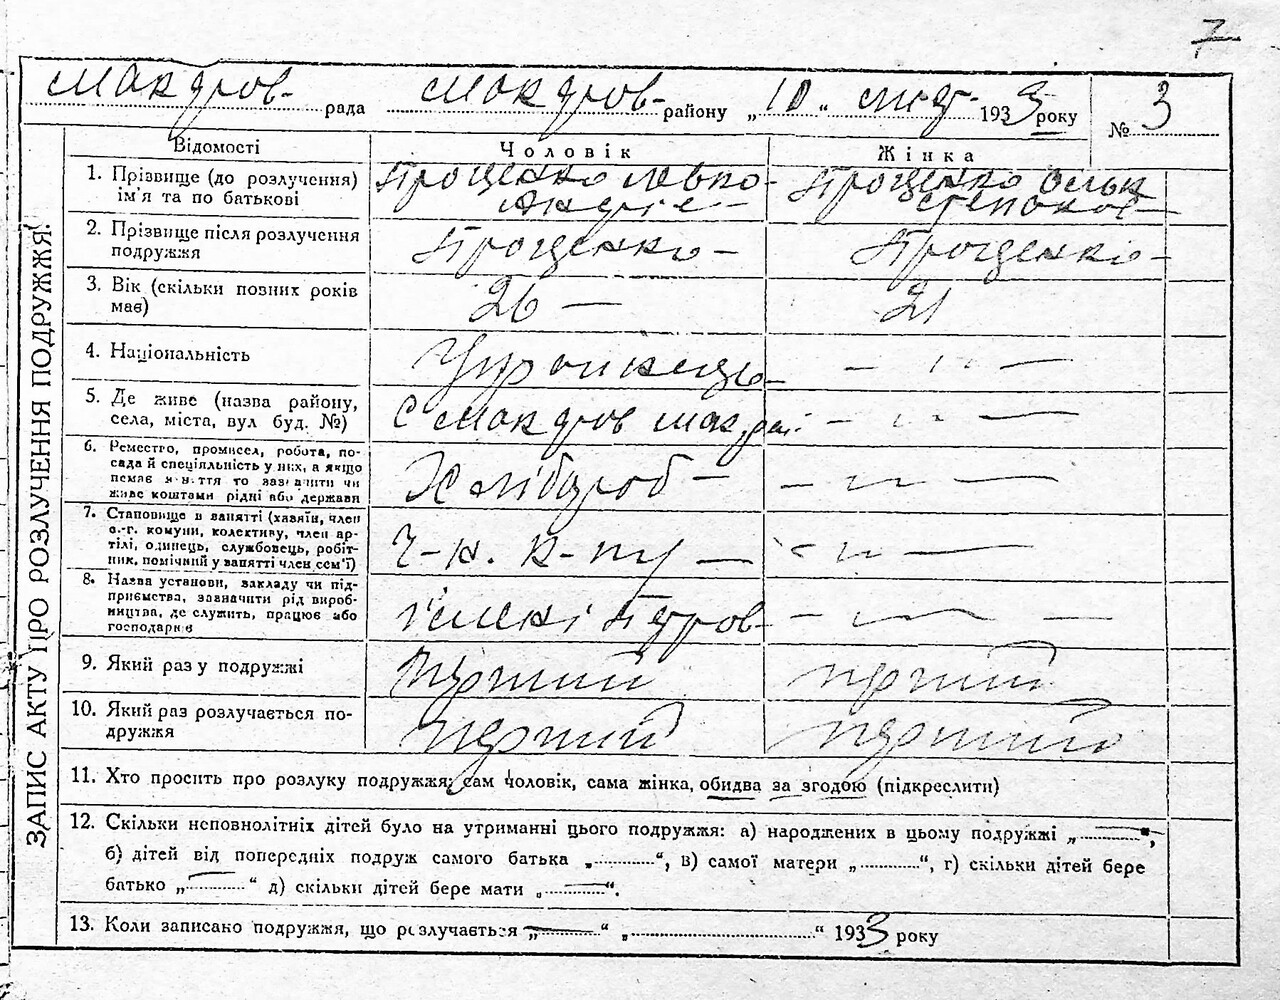 7
Макаров- рада Макаров- району „10" лют- 1933 року № 3
Відомості Чоловік Жінка
ЗАПИС АКТУ ПРО РОЗЛУЧЕННЯ ПОДРУЖЖЯ.
1. Прізвище (до розлучення) Проценко Левко- Проценко
ім'я та по батькові Андріє- Степанов-
2. Прізвище після розлучення
подружжя Проценко- Проценко-
3. Вік (скільки повних років 26 — 21
має)
4. Національність Українець- — „ —
5. Де живе (назва району,
села, міста, вул буд. №) С Макаров Мак. рай. - „ —
6. Реместро, промисел, робота, по-
сада й спеціяльність у них, а якщо
немає заняття то зазначити чи Хлібороб - - „ —
живе коштами рідні або держави
7. Становище в занятті (хазяїн, член
с.-г. комуни, колективу, член ар-
тілі, одинець, службовець, робіт- — „ —
ник, помічний у занятті член сем'ї)
8. Назва установи, закладу чи під-
приємства, зазначити рід вироб-
ництва, де служить, працює або — „ — —
господарює
9. Який раз у подружжі перший перший
10. Який раз розлучається по-
дружжя перший перший
11. Хто просить про розлуку подружжя; сам чоловік, сама жінка, обидва за згодою (підкреслити)
12. Скільки неповнолітніх дітей було на утриманні цього подружжя: а) народжених в цьому подружжі „—",
б) дітей від попередніх подруж самого батька „..........", в) самої матери „..........", г) скільки дітей бере
батько „—" д) скільки дітей бере мати „—".
13. Коли записано подружжя, що розлучається „—" „.............................." 1933 року